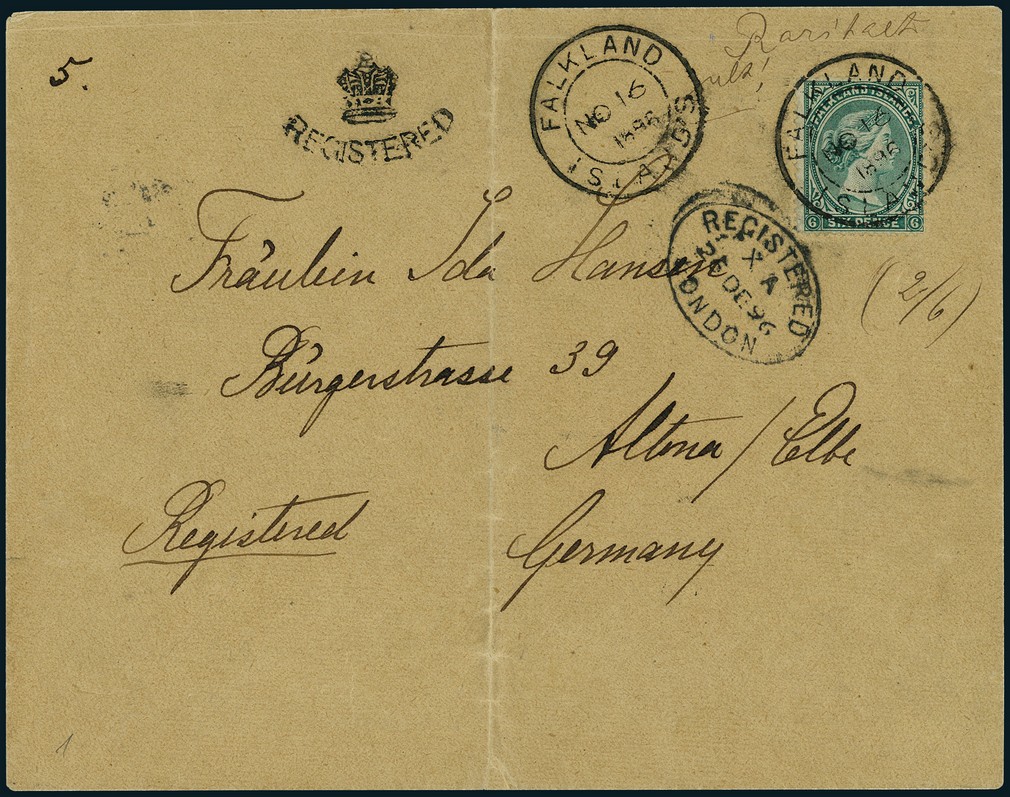 5.
REGISTERED
FALKLAND ISLANDS
NO 16
1896
FALKLAND ISLANDS
NO 16
1896
FALKLAND ISLANDS
6 SIX PENCE 6
REGISTERED
X A
2 DE 96
LONDON
Fräulein Ida Hansen
(2/6)
Bürgerstrasse 39
Altona / Elbe
Registered
Germany
1